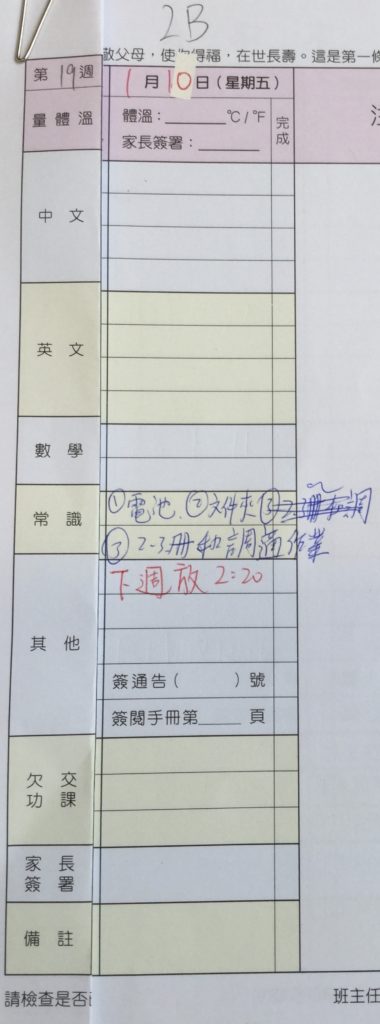 2B
敬父母，使你得福，在世長壽。這是第一條
第19週 1月10日（星期五）
量體溫 體溫：______℃/℉ 完成
家長簽署：______
中文
英文
數學
常識 ①電池 ②文件夾
③2-3冊
下週放 2:20
其他
簽通告（ ）號
簽閱手冊第____頁
欠交功課
家長簽署
備註
請檢查是否
班主任